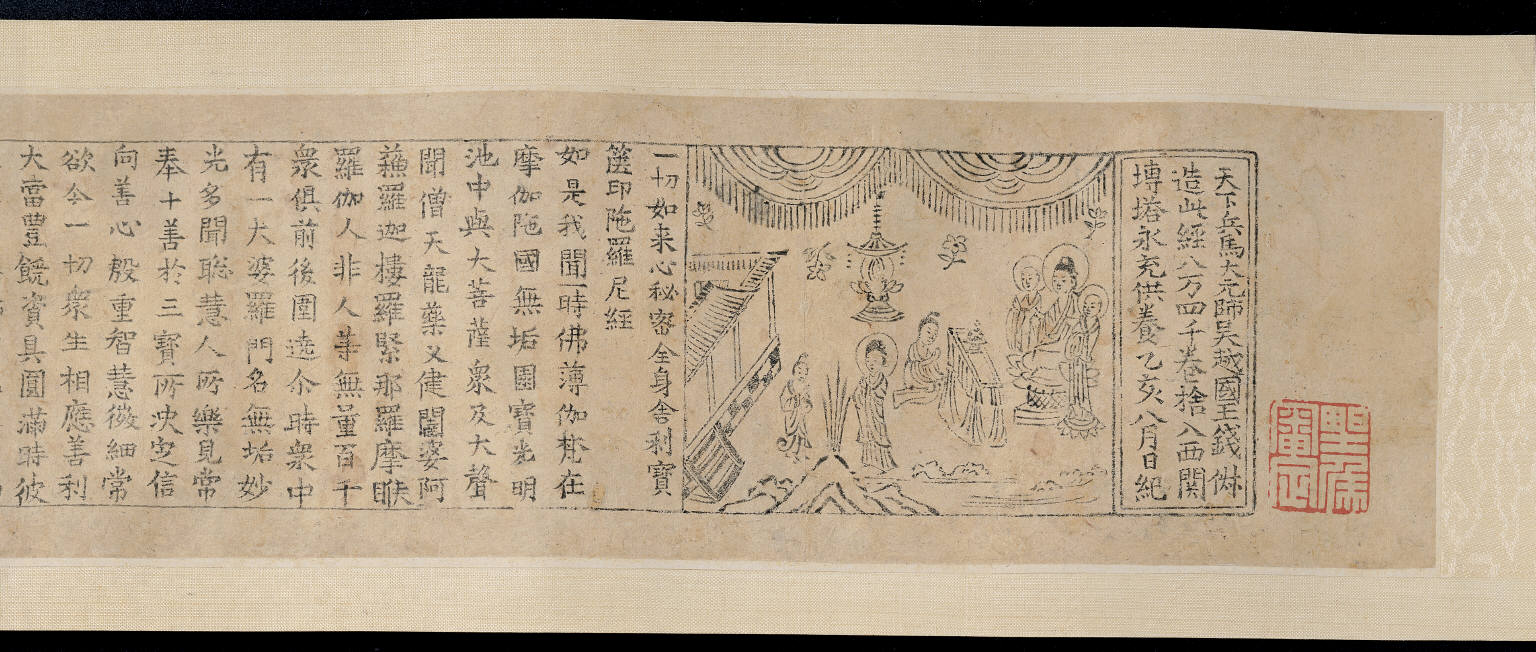 天下兵馬大元帥吳越國王錢俶
造此經八万四千卷捨入西關
塼塔永充供養乙亥八月日紀
一切如来心秘密全身舍利寶
篋印陁羅尼經
如是我聞一時佛薄伽梵在
摩伽陁國無垢園寶光明
池中與大菩薩衆及大聲
聞僧天龍藥叉健闥婆阿
蘓羅迦樓羅緊那羅摩睺
羅伽人非人䓁無量百千
衆俱前後圍遶尒時衆中
有一大婆羅門名無垢妙
光多聞聡慧人所樂見常
奉十善於三寶所決定信
向善心殷重智慧微細常
欲令一切衆生相應善利
大富豐饒資具圓滿時彼